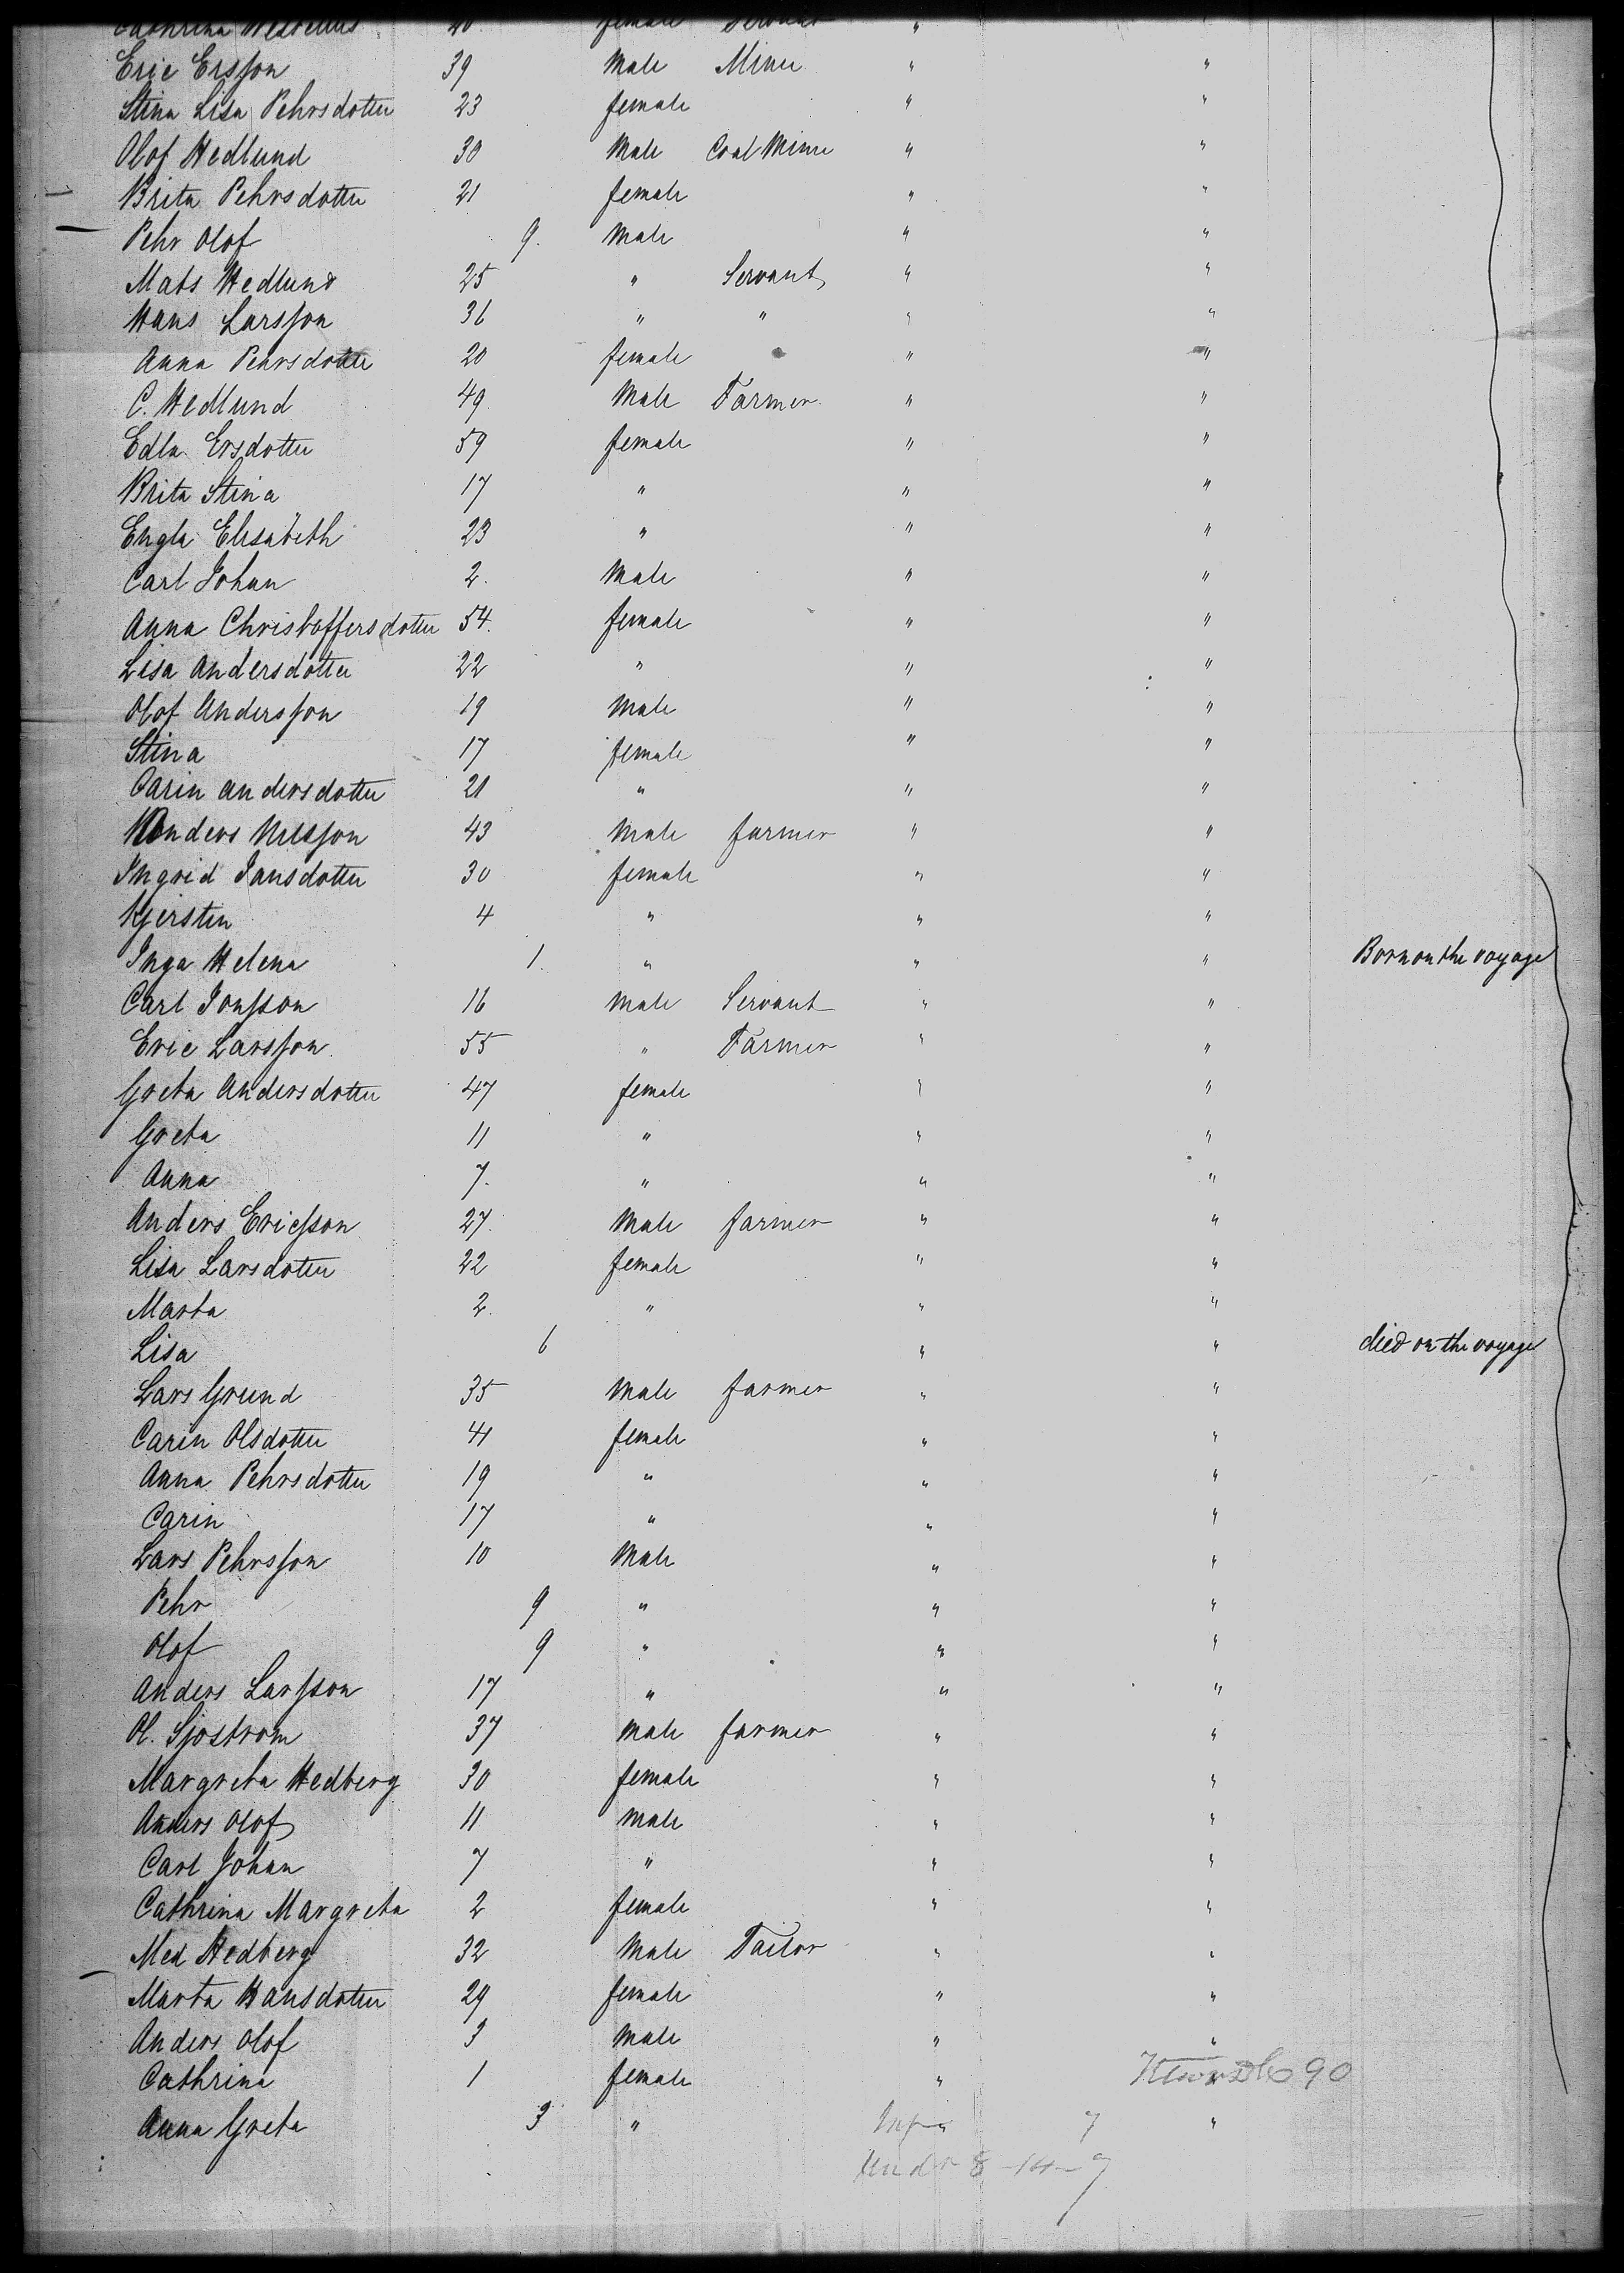 Cathrina 20 female Servant "
Eric Ersson 39 Male Miner " "
Stina Lisa Pehrsdotter 23 female " "
Olof Hedlund 30 Male Coal Miner " "
Brita Pehrsdotter 21 female " "
Pehr Olof 9. Male " "
Mats Hedlund 25 " Servant " "
Hans Larsson 36 " " " "
Anna Pehrsdotter 20 female " " "
C. Hedlund 49 Male Farmer " "
Edla Ersdotter 59 female " "
Brita Stina 17 " " "
Engla Elisabeth 23 " " "
Carl Johan 2. Male " "
Anna Christoffersdotter 54. female " "
Lisa Andersdotter 22 " " "
Olof Andersson 19 Male " "
Stina 17 female " "
Carin Andersdotter 21 " " "
Anders Nilsson 43 Male farmer " "
Ingrid Jansdotter 30 female " "
Kjersten 4 " " "
Inga Helena 1. " " " Born on the voyage
Carl Jonsson 16 Male Servant " "
Eric Larsson 55 " Farmer " "
Greta Andersdotter 47 female " "
Greta 11 " " "
Anna 7. " " "
Anders Ericsson 27. Male farmer " "
Lisa Larsdotter 22 female " "
Marta 2. " " "
Lisa 6 " " died on the voyage
Lars Grund 35 Male farmer " "
Carin Olsdotter 41 female " "
Anna Pehrsdotter 19 " " "
Carin 17 " " "
Lars Pehrsson 10 Male " "
Pehr 9 " " "
Olof 9 " " "
Anders Larsson 17 " " "
Ol. Sjostrom 37 Male farmer " "
Margreta Hedberg 30 female " "
Anders Olof 11 Male " "
Carl Johan 7 " " "
Cathrina Margreta 2 female " "
Med Hedberg 32 Male Tailor " "
Marta Hansdotter 29 female " "
Anders Olof 3 Male " "
Cathrina 1 female " 90
Anna Greta 3 " 7 "
Und 8-14-7